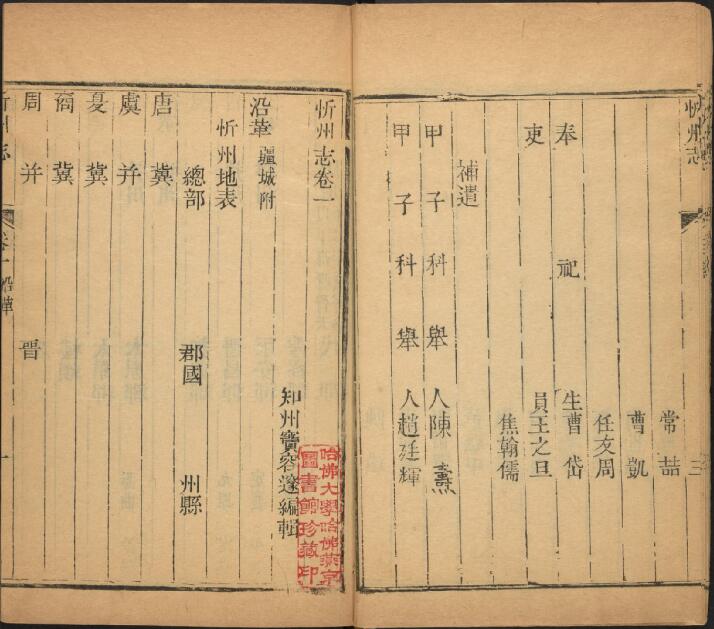 忻州志
三
常喆
曹凱
任友周
奉祀生曹岱
吏員王之旦
焦翰儒
補遺
甲子科舉人陳燾
甲子科舉人趙廷輝
忻州志卷一
知州竇容邃編輯
哈佛大學哈佛燕京
圖書館珍藏印
沿革疆城附
忻州地表
總部 郡國 州縣
唐冀
虞并
夏冀
商冀
周并 晉
忻州志 卷一 沿革 一